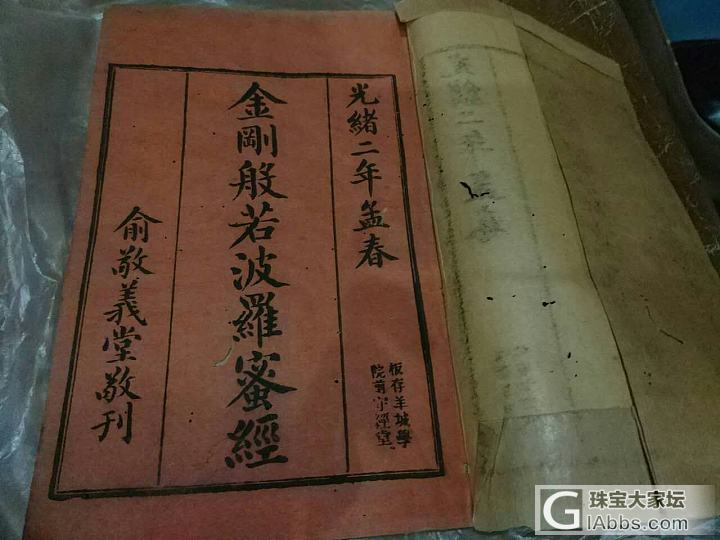 光緒二年孟春
板存羊城學
院前守經堂
金剛般若波羅蜜經
俞敬義堂敬刊
珠宝大家坛
GIAbbs.com